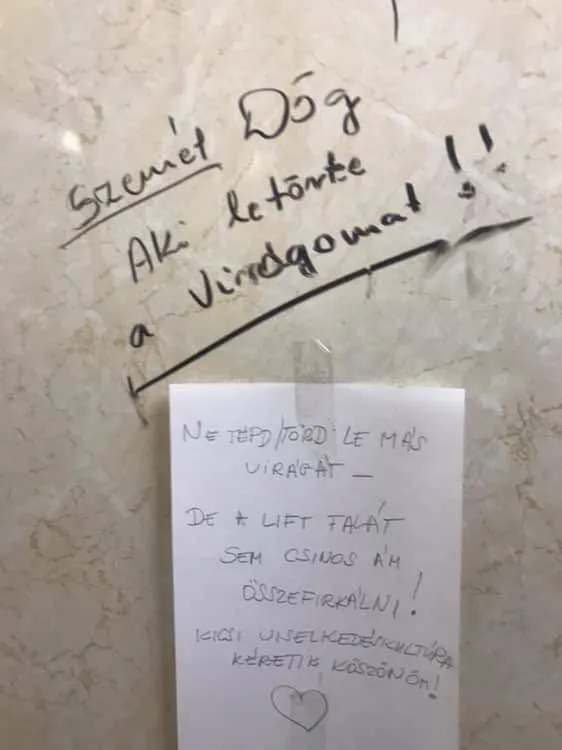 Szemét Dög
Aki letörte
a virágomat!!
NE TÉPD/TÖRD LE MÁS
VIRÁGÁT –
DE A LIFT FALÁT
SEM CSINOS ÁM
ÖSSZEFIRKÁLNI!
KICSI VISELKEDÉSKULTÚRA
KÉRETIK KÖSZÖNÖM!